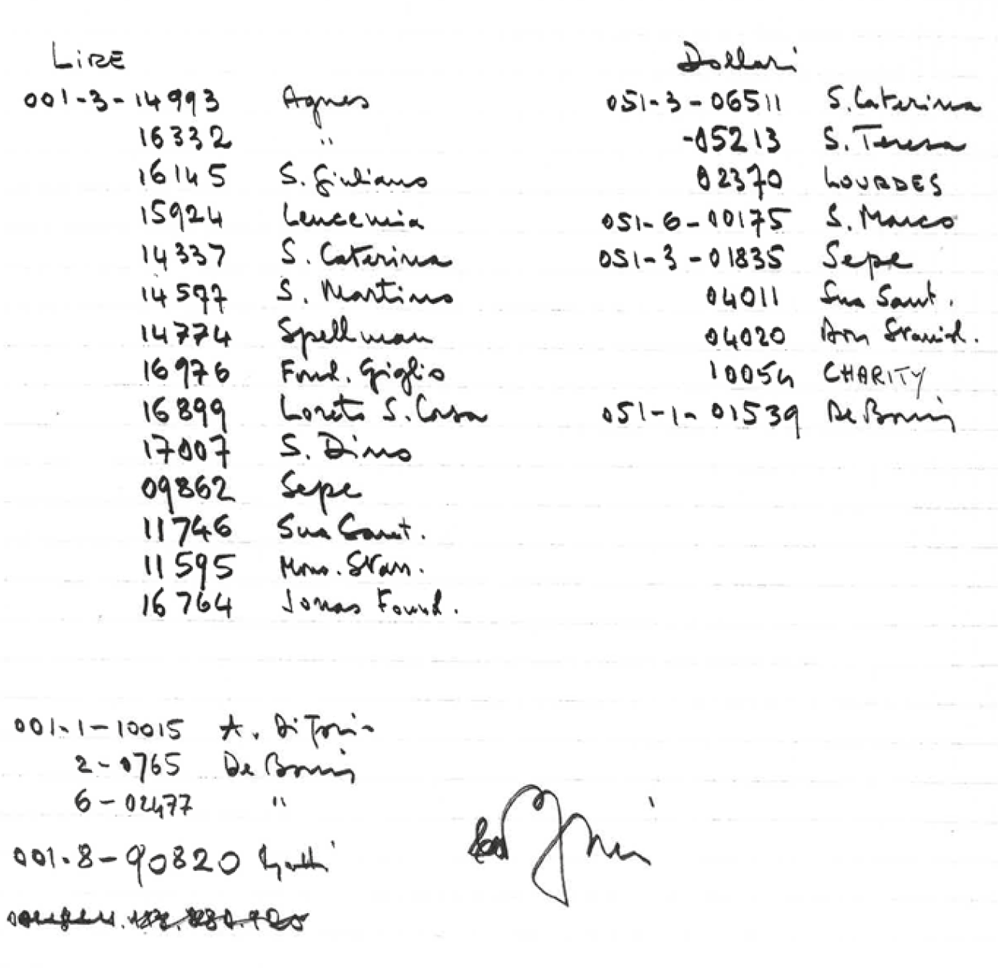 LiRE
001-3-14993 Agnes
16332 "
16145 S. Giuliano
15924 Leucemia
14337 S. Caterina
14577 S. Martino
14774 Spellman
16976 Fond. Giglio
16899 Loreto S. Casa
17007 S. Dino
09862 Sepe
11746 Sua Sant.
11595 Mons. Stan.
16764 Jonas Found.
Dollari
051-3-06511 S. Caterina
-05213 S. Teresa
02370 LOURDES
051-6-00175 S. Marco
051-3-01835 Sepe
04011 Sua Sant.
04020 Don Stanisl.
10054 CHARITY
051-1-01539 De Bonis
001-1-10015 A. Di
2-0765 De Bonis
6-02477 "
001-8-90820